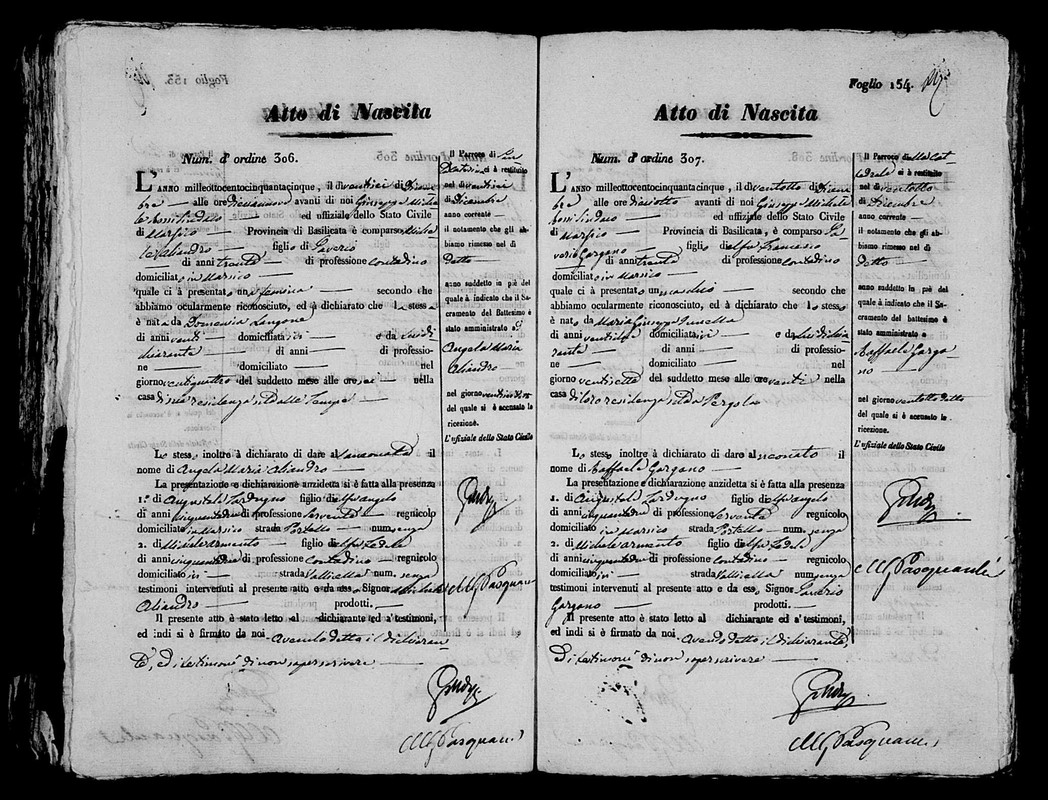 Atto di Nascita
Num. d'ordine 306.
L'ANNO milleottocentocinquantacinque, il dì ventisei di Dicem
bre — alle ore diciannove avanti di noi Giuseppe Miche
le ed uffiziale dello Stato Civile
di Marsico — Provincia di Basilicata, è comparso Miche
le Aliandro — figlio di Saverio
di anni trenta — di professione Contadino
domiciliato in Marsico —
quale ci à presentato una femina — secondo che
abbiamo ocularmente riconosciuto, ed à dichiarato che la stessa
è nata da Domenica Langone
di anni venti — domiciliata ivi — e da lui di
chiarante — di anni — di professio-
ne — domiciliato — nel
giorno ventiquattro del suddetto mese alle ore sei — nella
casa di sua residenza sita alle Tempe —
Lo stesso inoltre à dichiarato di dare al neonato il
nome di Angela Maria Aliandro —
La presentazione e dichiarazione anzidetta si è fatta alla presenza
1.° di figlio di Angelo
di anni cinquanta di professione Serviente regnicolo
domiciliato in Marsico strada Portello — num. senza
2. di Michele Armento — figlio di Fedele
di anni cinquanta di professione Contadino — regnicolo
domiciliato ivi — strada Vallicella num. senza
testimoni intervenuti al presente atto e da esso Signor Michele
Aliandro — prodotti. —
Il presente atto è stato letto al dichiarante ed a' testimoni,
ed indi si è firmato da noi avendo detto il dichiaran
te, e di testimoni di non saper scrivere —
M G Pasquarelli
Il Parroco di San
ci à restituito
nel dì ventisei
di Dicembre
anno corrente —
il notamento che gli ab-
biamo rimesso nel dì
detto —
anno suddetto in piè del
quale à indicato che il Sa-
cramento del Battesimo è
stato amministrato a
Angela Maria
Aliandro —
nel giorno
del quale si è accusato la
ricezione.
L'ufiziale dello Stato Civile
M G Pasquarelli
Foglio 154.
Atto di Nascita
Num. d'ordine 307.
L'ANNO milleottocentocinquantacinque, il dì ventotto di Dicem
bre — alle ore diciotto — avanti di noi Giuseppe Michele
ed uffiziale dello Stato Civile
di Marsico — Provincia di Basilicata, è comparso Sa
verio Gargano — figlio di Francesco
di anni trenta — di professione Contadino
domiciliato in Marsico —
quale ci à presentato un maschio — secondo che
abbiamo ocularmente riconosciuto, ed à dichiarato che lo stesso
è nato da Maria Giuseppa
di anni domiciliata ivi — e da lui dichia
rante — di anni — di professio-
ne — domiciliato — nel
giorno ventisette del suddetto mese alle ore venti — nella
casa di loro residenza sita a Pergola
Lo stesso inoltre à dichiarato di dare al neonato il
nome di Raffaele Gargano —
La presentazione e dichiarazione anzidetta si è fatta alla presenza
1. di figlio di Angelo
di anni cinquanta di professione Serviente regnicolo
domiciliato in Marsico strada Portello — num. senza
2. di Michele Armento figlio di Fedele
di anni cinquanta di professione Contadino — regnicolo
domiciliato ivi — strada Vallicella num senza
testimoni intervenuti al presente atto e da esso Signor Saverio
Gargano — prodotti. —
Il presente atto è stato letto al dichiarante ed a' testimoni,
ed indi si è firmato da noi avendo detto il dichiarante,
e di testimoni di non saper scrivere —
M G Pasquarelli
Il Parroco della Cat
tedrale ci à restituito
nel dì ventotto
di Dicembre
anno corrente —
il notamento che gli ab-
biamo rimesso nel dì
detto —
anno suddetto in piè del
quale à indicato che il Sa-
cramento del battesimo è
stato amministrato a
Raffaele Garga
no —
nel giorno ventotto detto
del quale si è accusato la
ricezione.
L'ufiziale dello Stato Civile
M G Pasquarelli